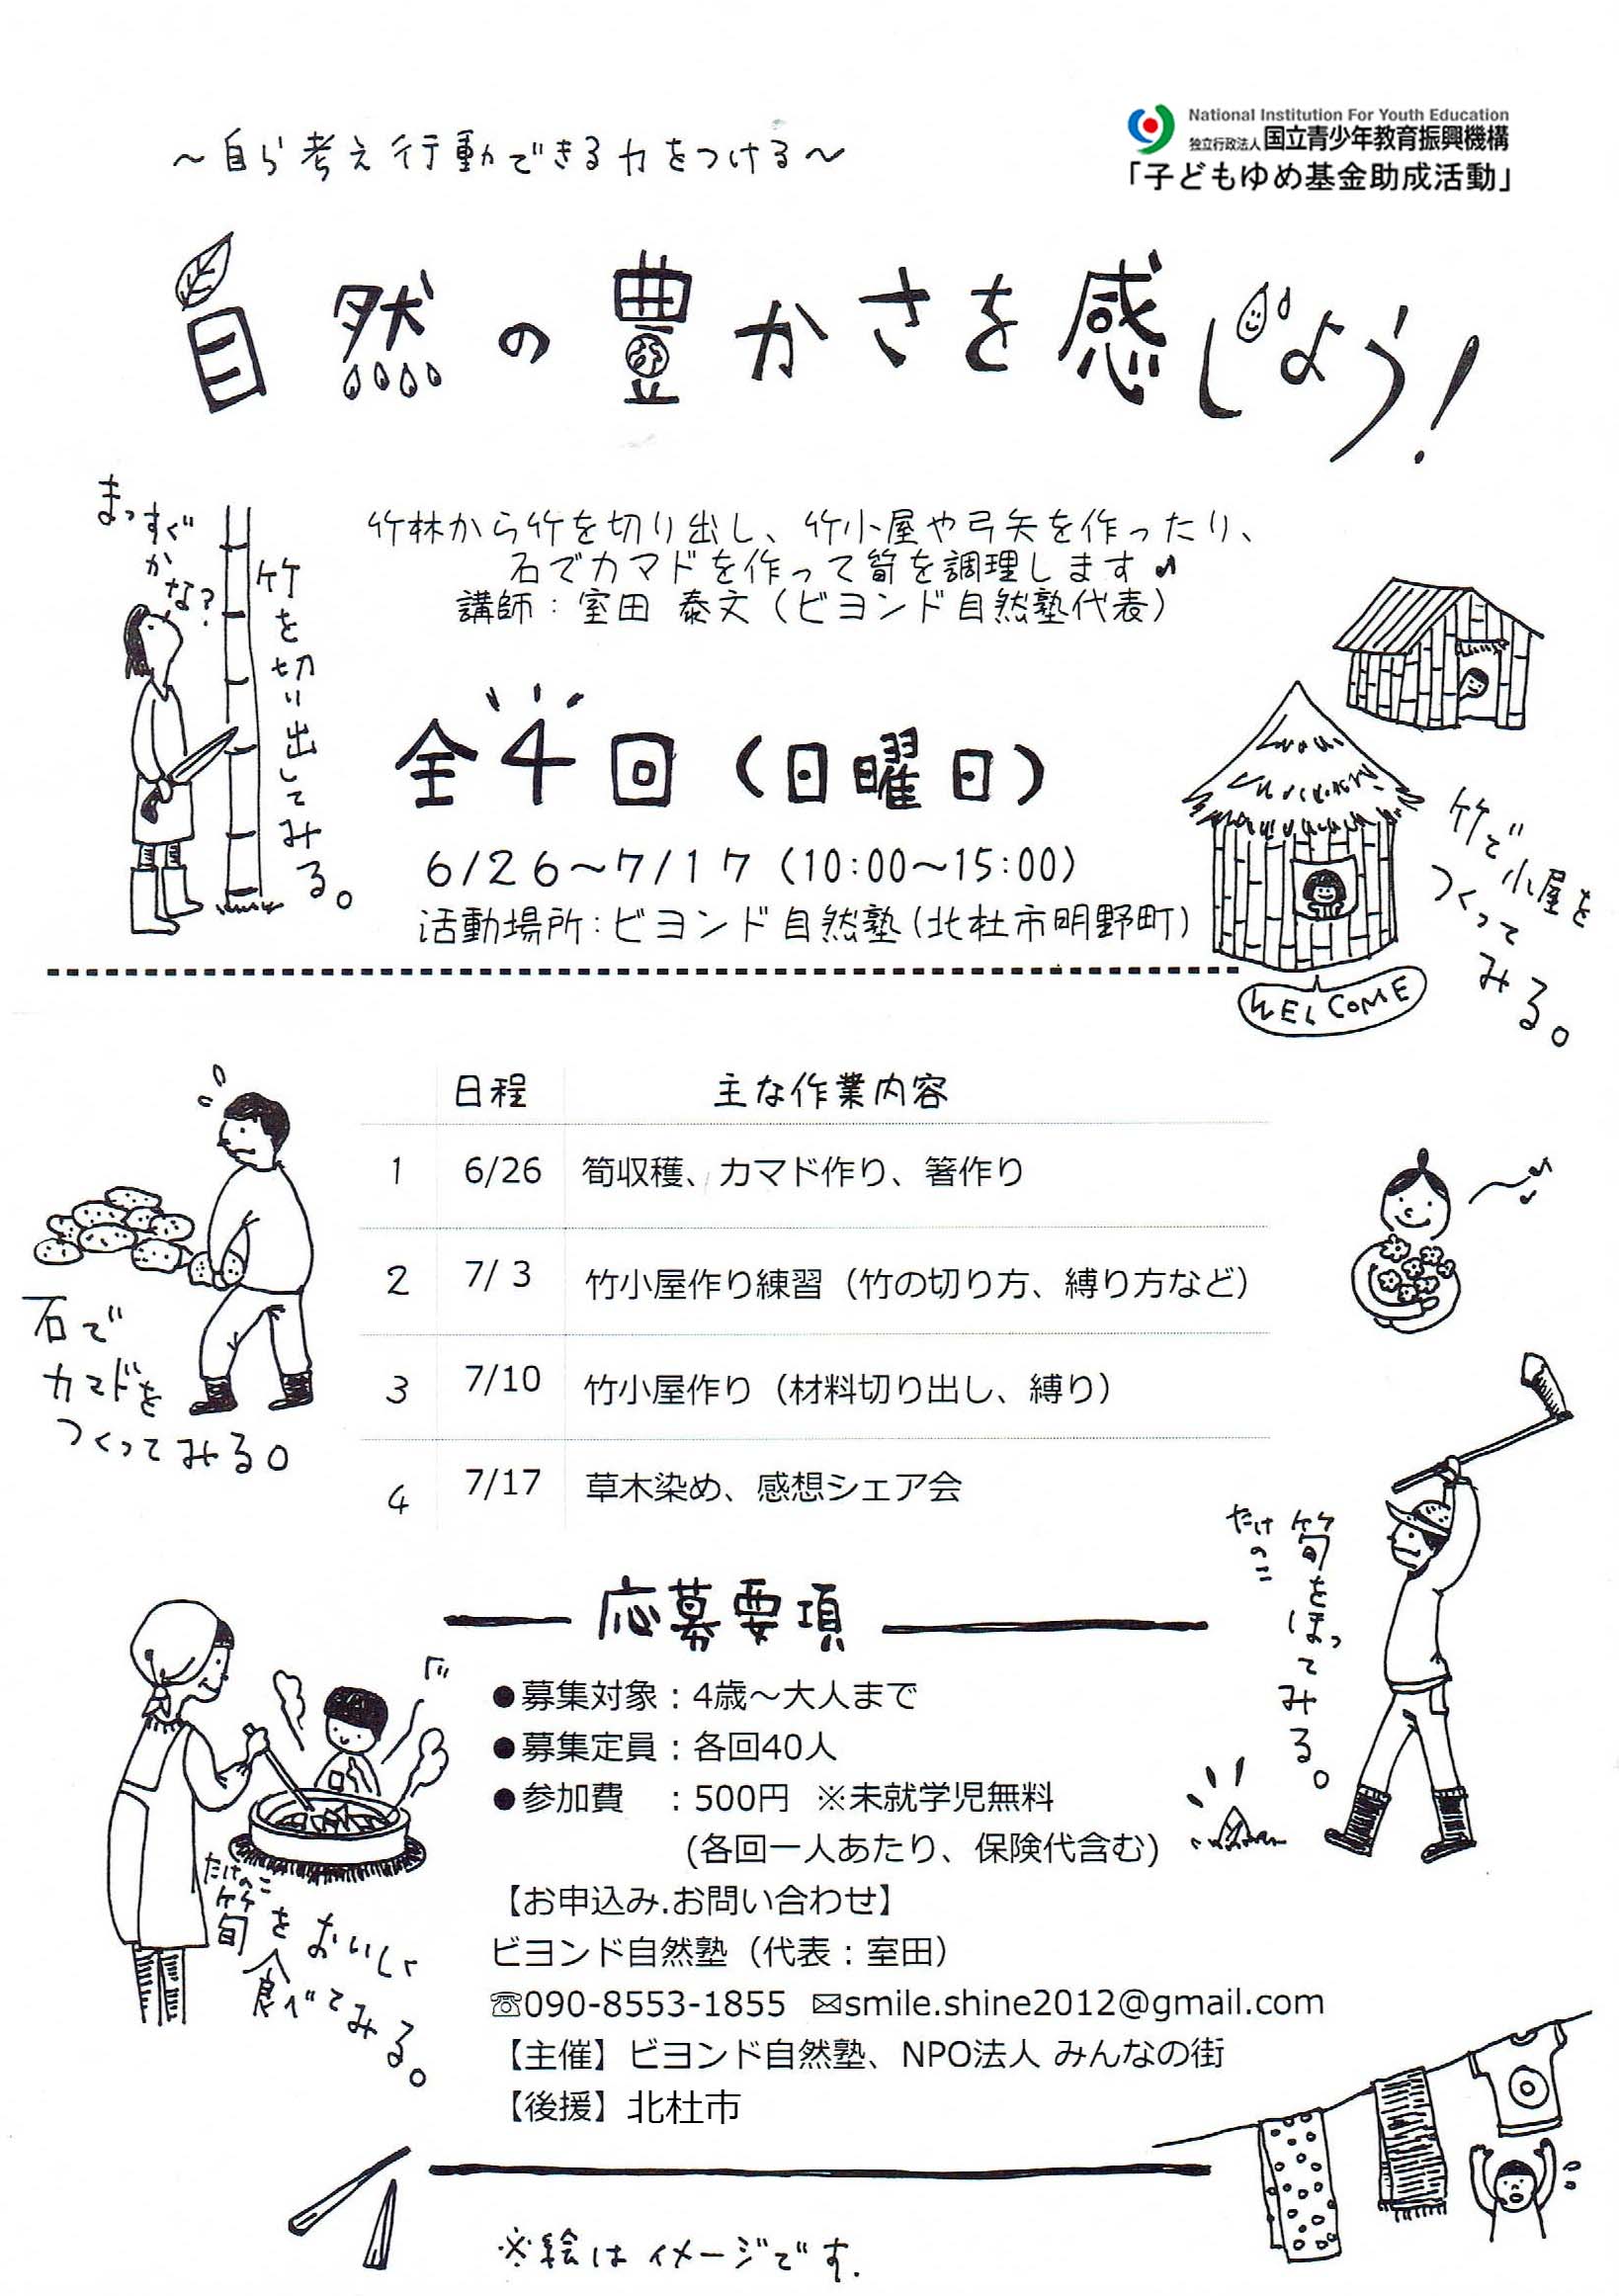 ～自ら考え行動できる力をつける～
National Institution For Youth Education
独立行政法人 国立青少年教育振興機構
「子どもゆめ基金助成活動」
自然の豊かさを感じよう!
まっすぐかな?
竹を切り出してみる。
竹林から竹を切り出し、竹小屋や弓矢を作ったり、
石でカマドを作って筍を調理します♪
講師：室田 泰文（ビヨンド自然塾代表）
全4回（日曜日）
6/26～7/17（10:00～15:00）
活動場所：ビヨンド自然塾（北杜市明野町）
竹で小屋をつくってみる。
WELCOME
日程 主な作業内容
1 6/26 筍収穫、カマド作り、箸作り
2 7/ 3 竹小屋作り練習（竹の切り方、縛り方など）
3 7/10 竹小屋作り（材料切り出し、縛り）
4 7/17 草木染め、感想シェア会
石で
カマドを
つくってみる。
たけのこ
筍をほってみる。
応募要項
●募集対象：4歳～大人まで
●募集定員：各回40人
●参加費　：500円 ※未就学児無料
(各回一人あたり、保険代含む)
【お申込み.お問い合わせ】
ビヨンド自然塾（代表：室田）
☏090-8553-1855 ✉smile.shine2012@gmail.com
【主催】ビヨンド自然塾、NPO法人 みんなの街
【後援】北杜市
たけのこ
筍をおいしく
食べてみる。
※絵はイメージです.